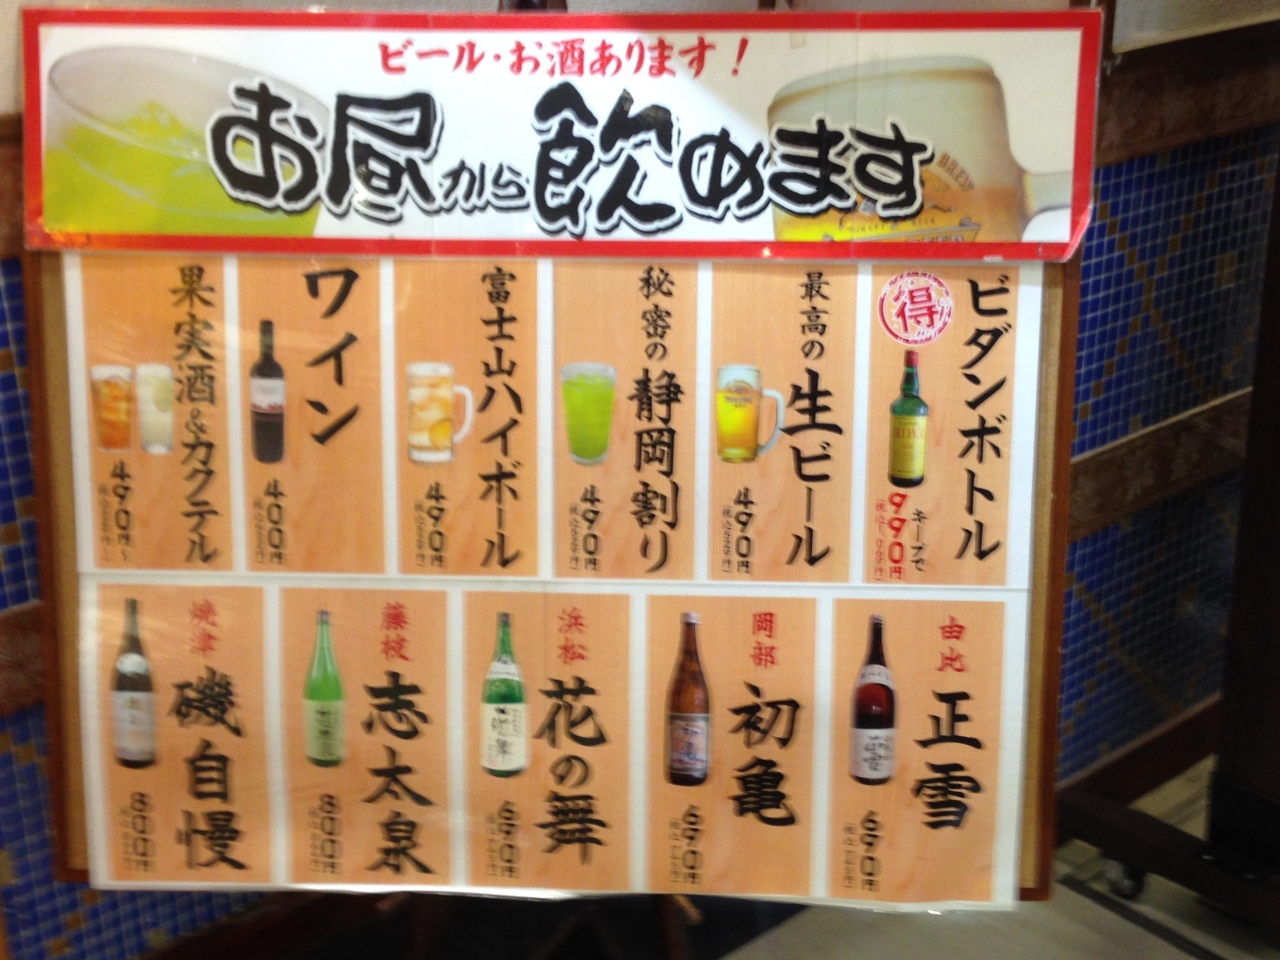 ビール・お酒あります!
お昼から飲めます
ビダンボトル
得
キープで
990円
最高の生ビール
490円
秘密の静岡割り
490円
富士山ハイボール
490円
ワイン
400円
果実酒&カクテル
490円~
由比
正雪
690円
岡部
初亀
690円
浜松
花の舞
690円
藤枝
志太泉
800円
焼津
磯自慢
800円